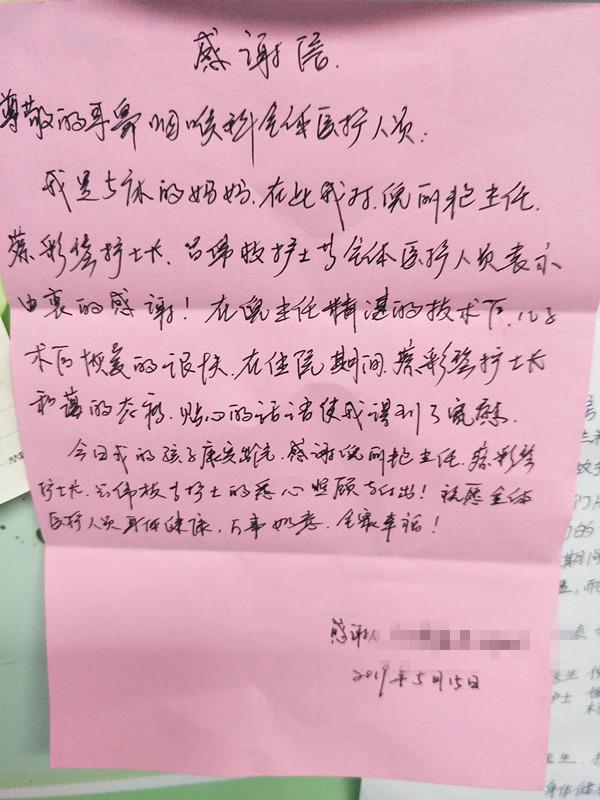 感谢信.
尊敬的耳鼻咽喉科全体医护人员:
我是与床的妈妈,在此我对倪丽艳主任,
蔡彩签护士长、吕伟枝护士等全体医护人员表示
由衷的感谢!在倪主任精湛的技术下,儿子
术后恢复的很快,在住院期间,蔡彩签护士长
和蔼的态度,贴心的话语使我得到了宽慰.
今日我的孩子康复出院,感谢倪丽艳主任,蔡彩签
护士长、吕伟枝等护士的悉心照顾与付出!祝愿全体
医护人员身体健康,万事如意,全家幸福!
感谢人
2019年5月15日